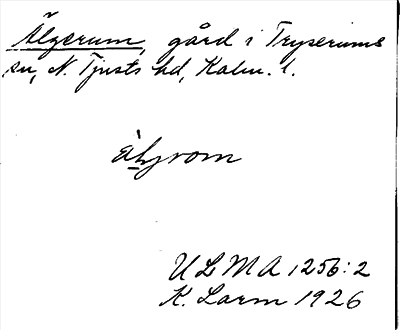 Älgerum, gård i Tryserums
sn, N. Tjusts hd, Kalm. l.
älgrom
ULMA 1256:2
K. Larm 1926